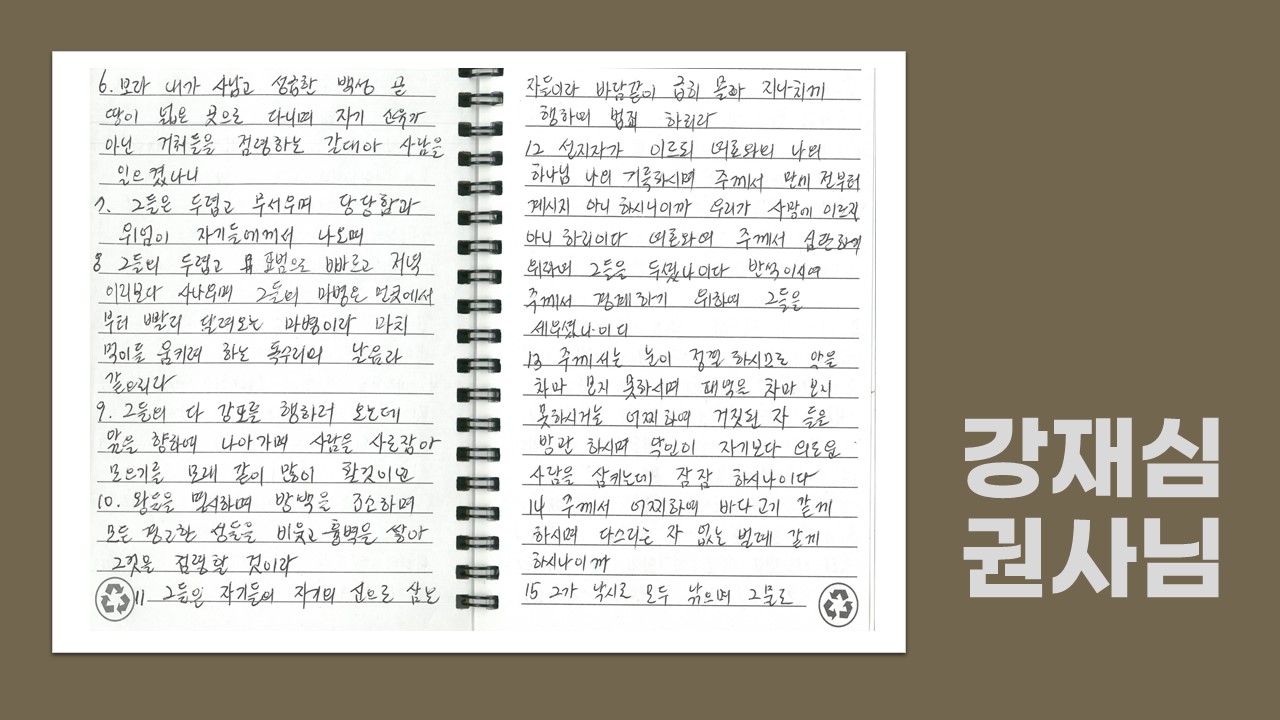 6. 보라 내가 사납고 성급한 백성 곧
땅이 넓은 곳으로 다니며 자기 소유가
아닌 거처들을 점령하는 갈대아 사람을
일으켰나니
7. 그들은 두렵고 무서우며 당당함과
위엄이 자기들에게서 나오며
8 그들의 두렵고 표범으로 빠르고 저녁
이리보다 사나우며 그들의 마병은 먼곳에서
부터 빨리 달려오는 마병이라 마치
먹이를 움키려 하는 독수리의 날음과
같으리라
9. 그들의 다 강포를 행하러 오는데
앞을 향하여 나아가며 사람을 사로잡아
모으기를 모래 같이 많이 할것이요
10. 왕들을 멸시하며 방백을 조소하며
모든 견고한 성들을 비웃고 흉벽을 쌓아
그것을 점령할 것이라
11 그들은 자기들의 자기의 신으로 삼는
자들이라 바람같이 급히 몰아 지나치게
행하며 범죄 하리라
12 선지자가 이르되 여호와여 나의
하나님 나의 거룩하시며 주께서 만세 전부터
계시지 아니하시니이까 우리가 사망에 이르지
아니 하리이다 여호와여 주께서 심판하기
위하여 그들을 두셨나이다 반석이시여
주께서 경계하기 위하여 그들을
세우셨나이다
13 주께서는 눈이 정결하시므로 악을
차마 보지 못하시며 패역을 차마 보시
못하시거늘 어찌하여 거짓된 자 들을
방관 하시며 악인이 자기보다 의로운
사람을 삼키는데 잠잠 하시나이다
14 주께서 어찌하여 바다고기 같게
하시며 다스리는 자 없는 벌레 같게
하시나이까
15 그가 낚시로 모두 낚으며 그물로
강재심
권사님